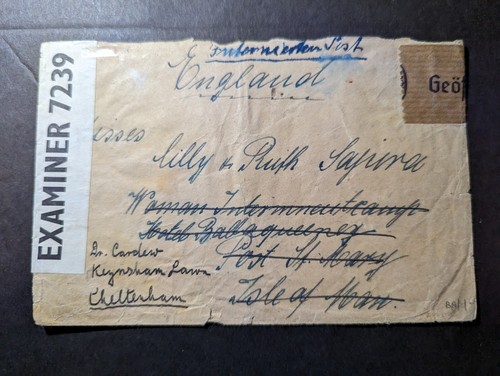 Internierten Post
England
EXAMINER 7239
Geö
isses
Lilly & Ruth Sapira
Woman Internmentcamp
Hotel Ballaqueeney
Port St. Mary
Isle of Man.
Dr. Cardew
Keynsham Lawn
Cheltenham